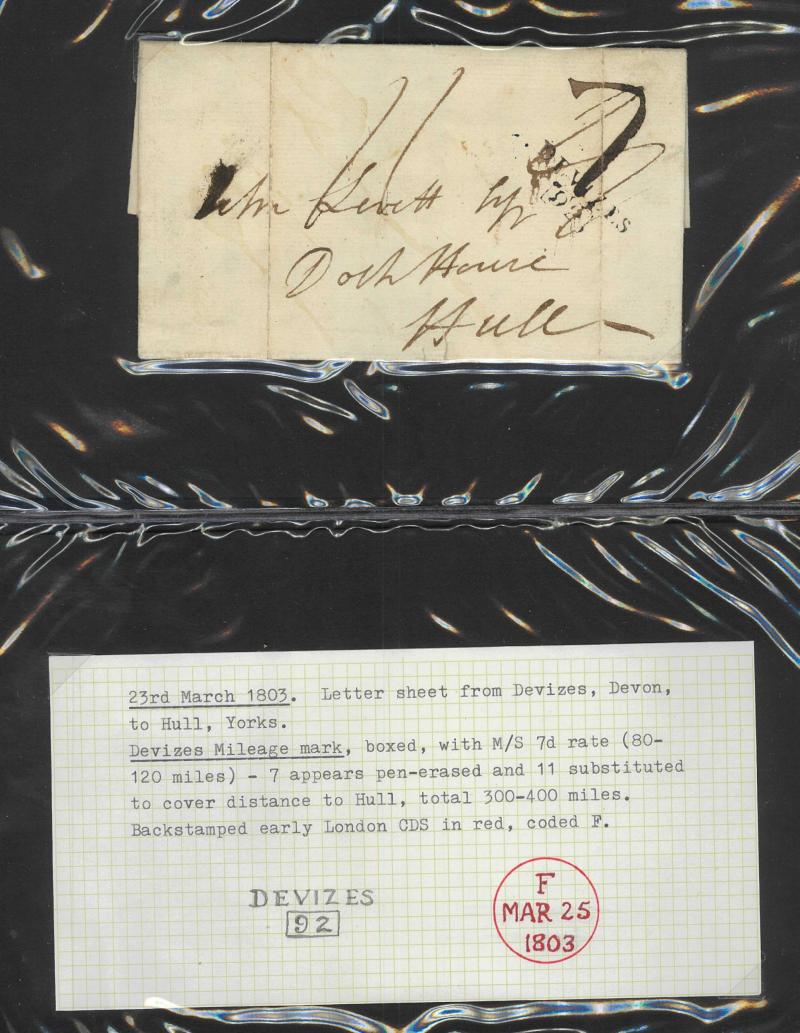 11
7
John Levett Esqr
DEVIZES
Dock House
Hull
23rd March 1803. Letter sheet from Devizes, Devon,
to Hull, Yorks.
Devizes Mileage mark, boxed, with M/S 7d rate (80-
120 miles) - 7 appears pen-erased and 11 substituted
to cover distance to Hull, total 300-400 miles.
Backstamped early London CDS in red, coded F.
DEVIZES
92
F
MAR 25
1803